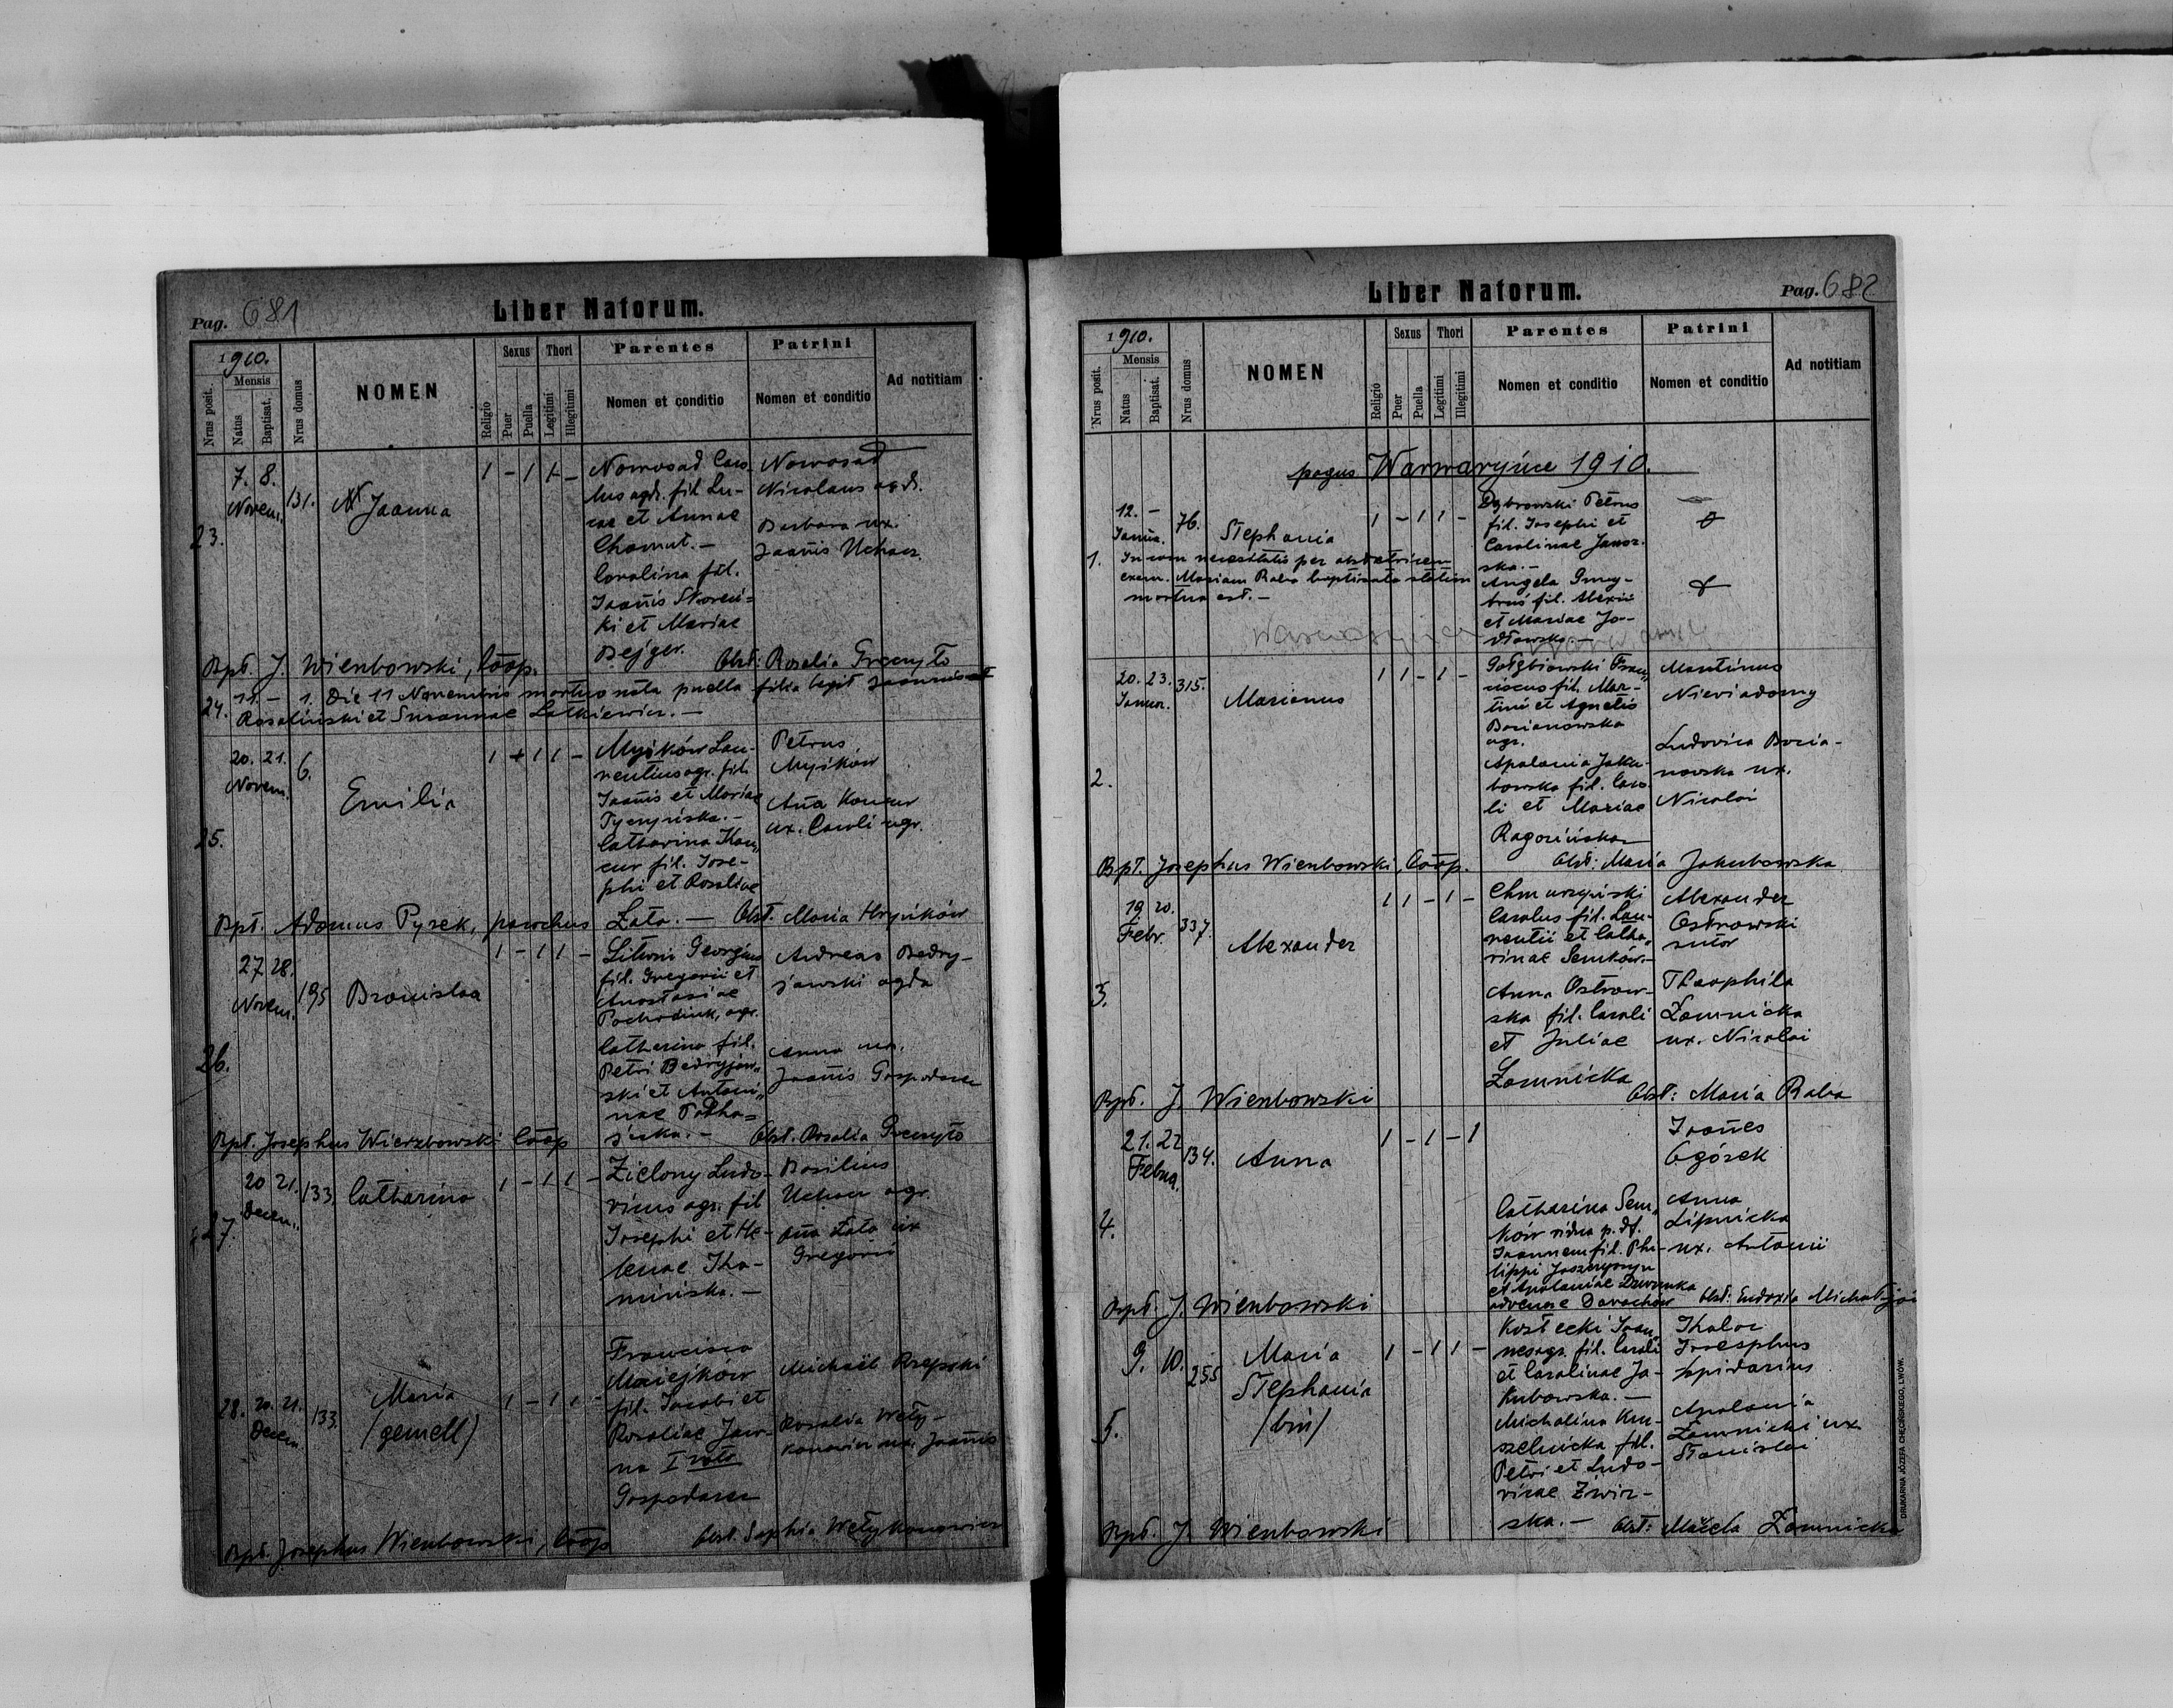 Pag. 681
Liber Natorum.
1910.
Mensis
Nrus posit.
Natus
Baptisat.
Nrus domus
NOMEN
Religio
Sexus
Puer
Puella
Thori
Legitimi
Illegitimi
Parentes
Nomen et conditio
Patrini
Nomen et conditio
Ad notitiam
23.
7. 8.
Novem.
131.
Joanna
1 - 1 1 -
Nowosad Caro-
lus agr. fil. Lu-
cae et Annae
Chomut. -
Carolina fil.
Joannis
ki et Mariae
Bejger.
Nowosad
Nicolaus
Barbara ux.
Joannis Uchacz.
Bpt. J. Wierzbowski, Coop.
Obst: Rosalia
24. 11. - 1. Die 11 Novembris mortua nata puella filia legit
Rosalinski et Susannae Latkiewicz. -
25.
20. 21.
Novem.
6.
Emilia
1 + 1 1 -
Laur-
rentius agr. fil.
Joannis et Mariae
Tyczyńska. -
Catharina Kan-
cur fil. Jose-
phi et Rosaliae
Petrus
ux. Caroli agr.
Bpt. Adamus Pyrek, parochus
Łata. - Obst. Maria Hryńków
26.
27. 28.
Novem.
195
Bronislaa
1 - 1 1 -
Georgius
fil. Gregorii et
Anastasiae
agr.
Catharina fil.
Petri Bedryjow-
ski et Antoni-
nae
Andreas Bedry-
jowski
Anna ux.
Joannis Gospodarz
Bpt. Josephus Wierzbowski Coop
Obst. Rosalia
27.
20 21.
Decem.
133.
Catharina
1 - 1 1 -
Zielony Ludo-
vicus agr. fil
Josephi et He-
lenae
mińska. -
Basilius
Uchacz agr.
Aña Łata ux
Gregorii
28.
20. 21.
Decem
133.
Maria
(gemell)
1 - 1 1 -
Francisca
Maiejków
fil. Jacobi et
Rosaliae Jawor-
na I voto
Gospodarz
Michaël Rzepski
Rosalia Wety-
konowicz ux. Joannis
Bpt. Josephus Wierzbowski, Coop
Obst. Sophia Wetykonowicz
Liber Natorum.
Pag. 682
1910.
Mensis
Nrus posit.
Natus
Baptisat.
Nrus domus
NOMEN
Religio
Sexus
Puer
Puella
Thori
Legitimi
Illegitimi
Parentes
Nomen et conditio
Patrini
Nomen et conditio
Ad notitiam
pagus Warwaryńce 1910.
1.
12. -
Janua.
76.
Stephania
1 - 1 1 -
In casu necessitatis per obstetricem
exam. Mariam Raba baptisata statim
mortua est. -
Dąbrowski Petrus
fil. Josephi et
Carolinae Jawor-
ska. -
Angela
fil. Alexii
et Mariae Jo-
dłowska. -
2.
20. 23.
Januar.
315.
Marianus
1 1 - 1 -
Gołębiowski Fran-
ciscus fil. Mar-
tini et Agnetis
Bocianowska
agr.
Apolonia Jaku-
bowska fil. Caro-
li et Mariae
Ragozińska
Martinus
Nieviadomy
Ludovica Bocia-
nowska ux.
Nicolai
Bpt. Josephus Wierzbowski, Coop.
Obst: Maria Jakubowska
3.
19. 20.
Febr.
337.
Alexander
1 1 - 1 -
Chmurzyński
Carolus fil. Lau-
rentii et Catha-
rinae Semków. -
Anna Ostrow-
ska fil. Caroli
et Juliae
Łomnicka
Alexander
Ostrowski
sutor
Theophila
Łomnicka
ux. Nicolai
Bpt. J. Wierzbowski
Obst: Maria Raba
4.
21. 22
Februa.
134.
Anna
1 - 1 - 1
Catharina Sem-
ków vidua p. df.
Joannem fil. Phi-
lippi
et Apoloniae
Joañes
Ogórek
Anna
Lipnicka
ux. Antonii
Bpt. J. Wierzbowski
Obst: Eudoxia
5.
9. 10.
255
Maria
Stephania
/bin/
1 - 1 1 -
Kostecki Joan-
nes agr. fil. Caroli
et Carolinae Ja-
kubowska. -
Michalina Kru-
szelnicka fil.
Petri et Ludo-
vicae Zwir-
ska. -
Josephus
lapidarius
Apolonia
Łomnicki ux
Stanislai
Bpt. J. Wierzbowski
Obst: Łomnicka
DRUKARNIA JÓZEFA CHĘCIŃSKIEGO, LWÓW.